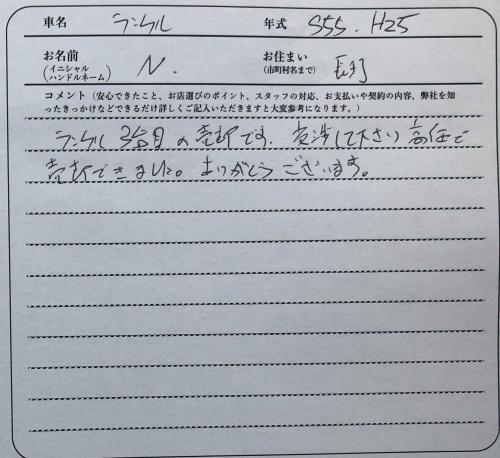 車名 ランクル 年式 S55. H25
お名前 (イニシャル ハンドルネーム) N. お住まい (市町村名まで)
コメント（安心できたこと、お店選びのポイント、スタッフの対応、お支払いや契約の内容、弊社を知
ったきっかけなどできるだけ詳しくご記入いただきますと大変参考になります。）
ランクル3台目の売却です。交渉して下さり高値で
売却できました。ありがとうございます。